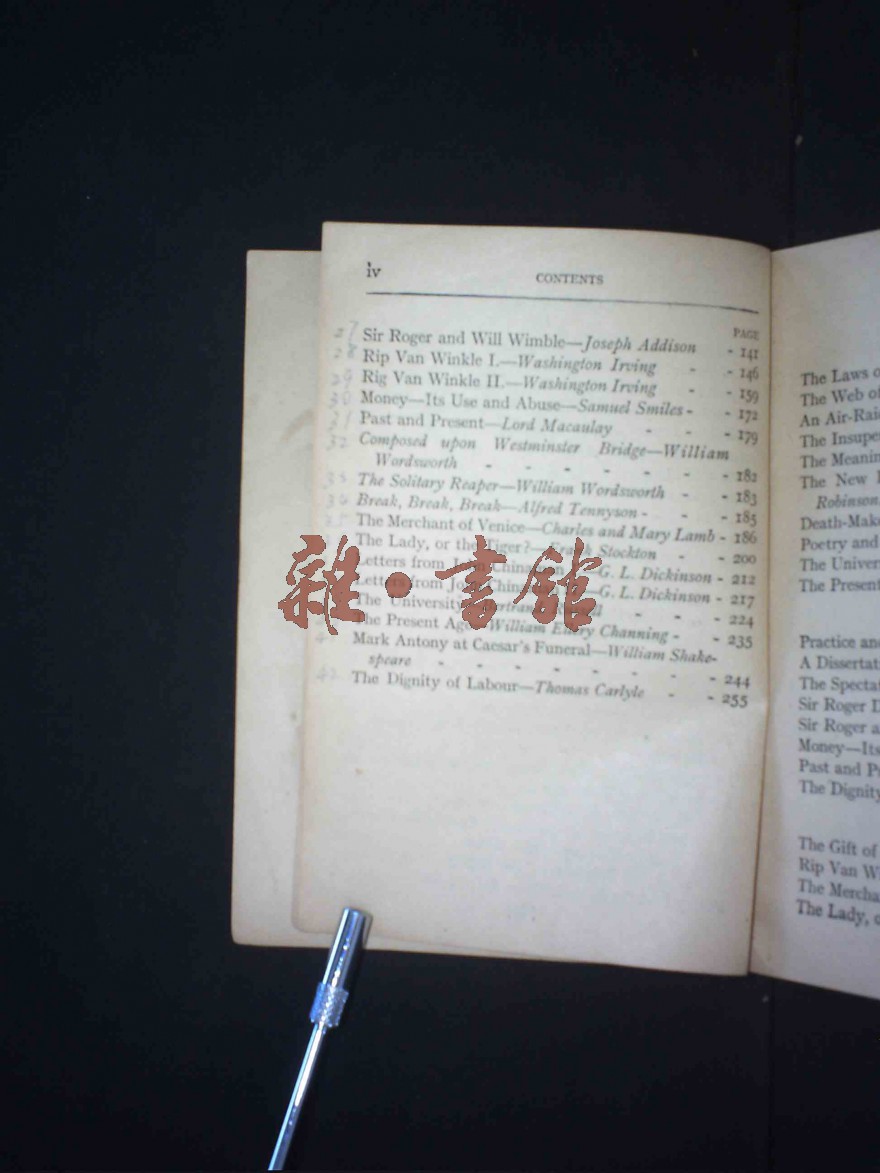 iv
CONTENTS
PAGE
27 Sir Roger and Will Wimble—Joseph Addison - 141
28 Rip Van Winkle I.—Washington Irving - - 146
29 Rig Van Winkle II.—Washington Irving - - 159
30 Money—Its Use and Abuse—Samuel Smiles - - 172
31 Past and Present—Lord Macaulay - - - 179
32 Composed upon Westminster Bridge—William
Wordsworth - - - - - - - 182
33 The Solitary Reaper—William Wordsworth - - 183
34 Break, Break, Break—Alfred Tennyson - - - 185
The Merchant of Venice—Charles and Mary Lamb - 186
The Lady, or the Tiger?—Frank Stockton - - 200
Letters from John —G. L. Dickinson - 212
Letters from John —G. L. Dickinson - 217
The University - - - 224
The Present Age—William Ellery Channing - - 235
Mark Antony at Caesar's Funeral—William Shake-
speare - - - - - - - 244
42 The Dignity of Labour—Thomas Carlyle - - 255
雜·書館
The Laws
The Web of
An Air-Raid
The
The
The New
Robinson
Death-
Poetry and
The
The Present
Practice and
A
The
Sir Roger
Sir Roger
Money—Its
Past and
The Dignity
The Gift of
Rip Van
The
The Lady,